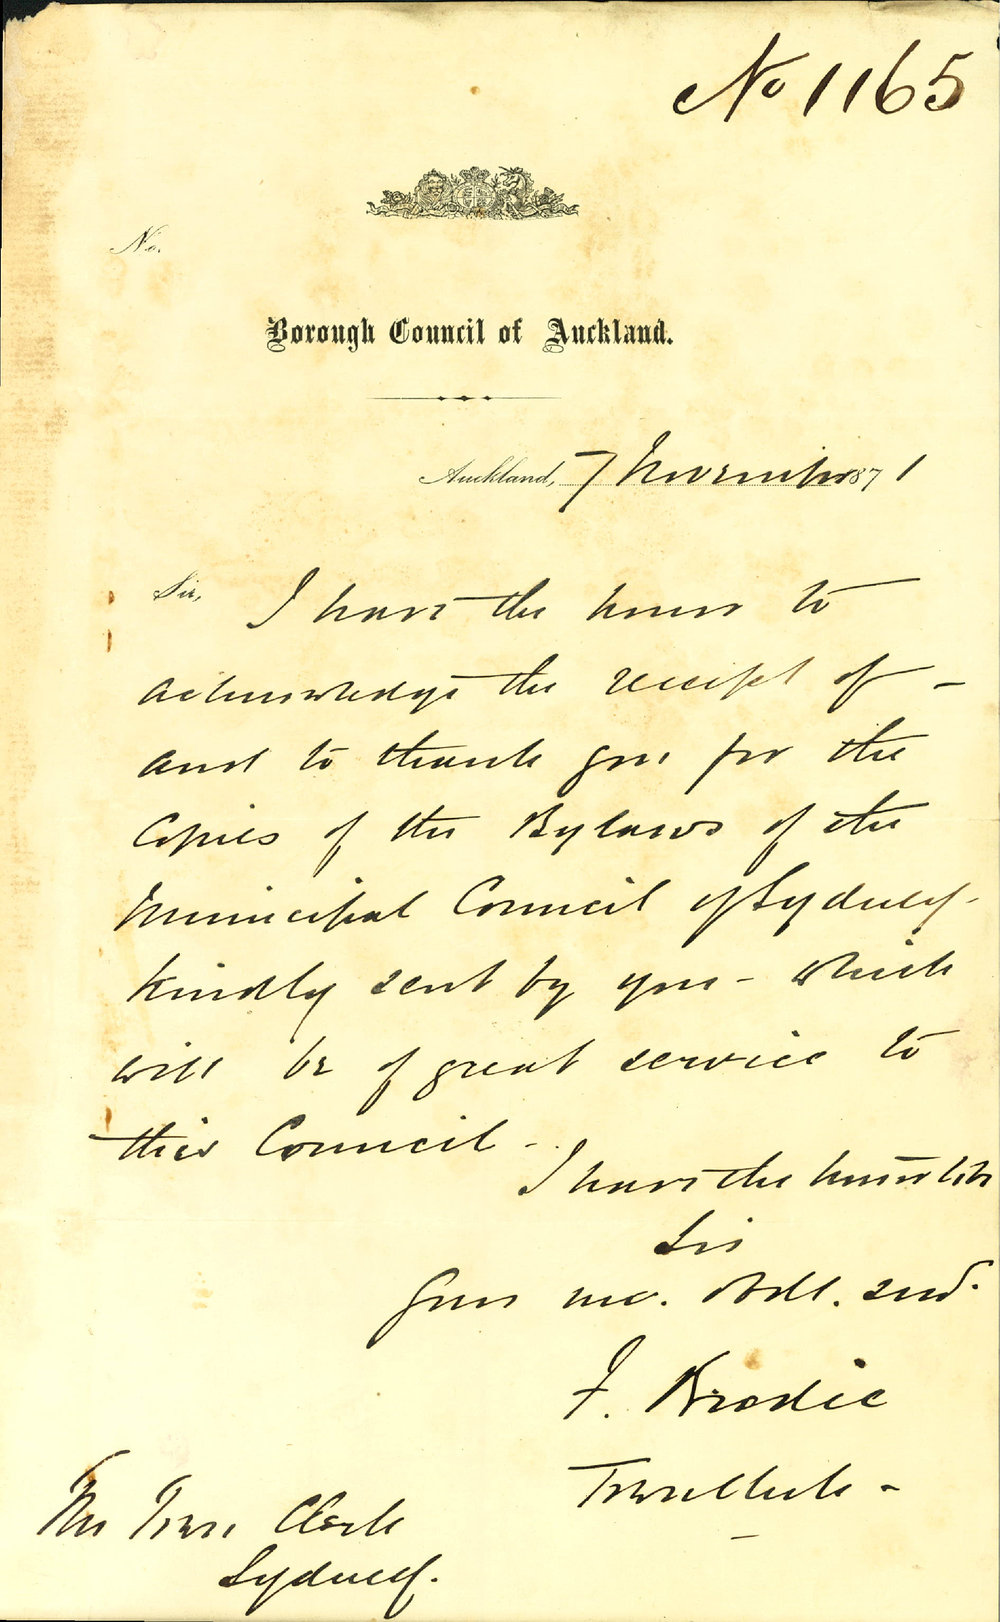 No 1165
No.
Borough Council of Auckland.
Auckland, 7 November 1871
Sir, I have the honor to
acknowledge the receipt of -
and to thank you for the
Copies of the Bylaws of the
Municipal Council of Sydney -
kindly sent by you - which
will be of great service to
this Council -
I have the honor to be
Sir
Your mo. obdt. servt.
F. Brodie
Town Clerk -
The Town Clerk
Sydney.